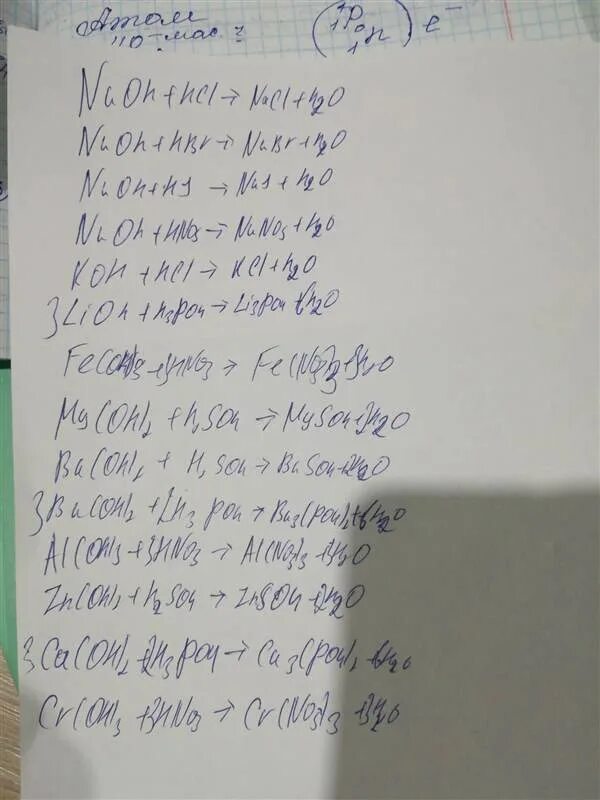 Атом
NaOh + HCl → NaCl + h2O
NaOh + hBr → NaBr + h2O
NaOh + HJ → NaJ + h2O
NaOh + HNO3 → NaNO3 + h2O
KOH + HCl → KCl + h2O
3LiOh + h3PO4 → Li3PO4 + 3h2O
Fe(OH)3 + 3HNO3 → Fe(NO3)3 + 3h2O
Mg(OH)2 + h2SO4 → MgSO4 + 2h2O
Ba(OH)2 + H2SO4 → BaSO4 + 2h2O
3Ba(OH)2 + 2h3PO4 → Ba3(PO4)2 + 6h2O
Al(OH)3 + 3HNO3 → Al(NO3)3 + 3h2O
Zn(OH)2 + h2SO4 → ZnSO4 + 2h2O
3Ca(OH)2 + 2H3PO4 → Ca3(PO4)2 + 6h2O
Cr(OH)3 + 3HNO3 → Cr(NO3)3 + 3h2O